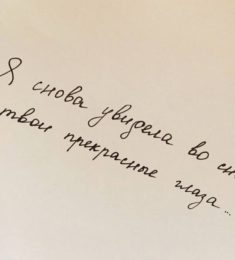 Я снова увидела во сн
твои прекрасные глаза...